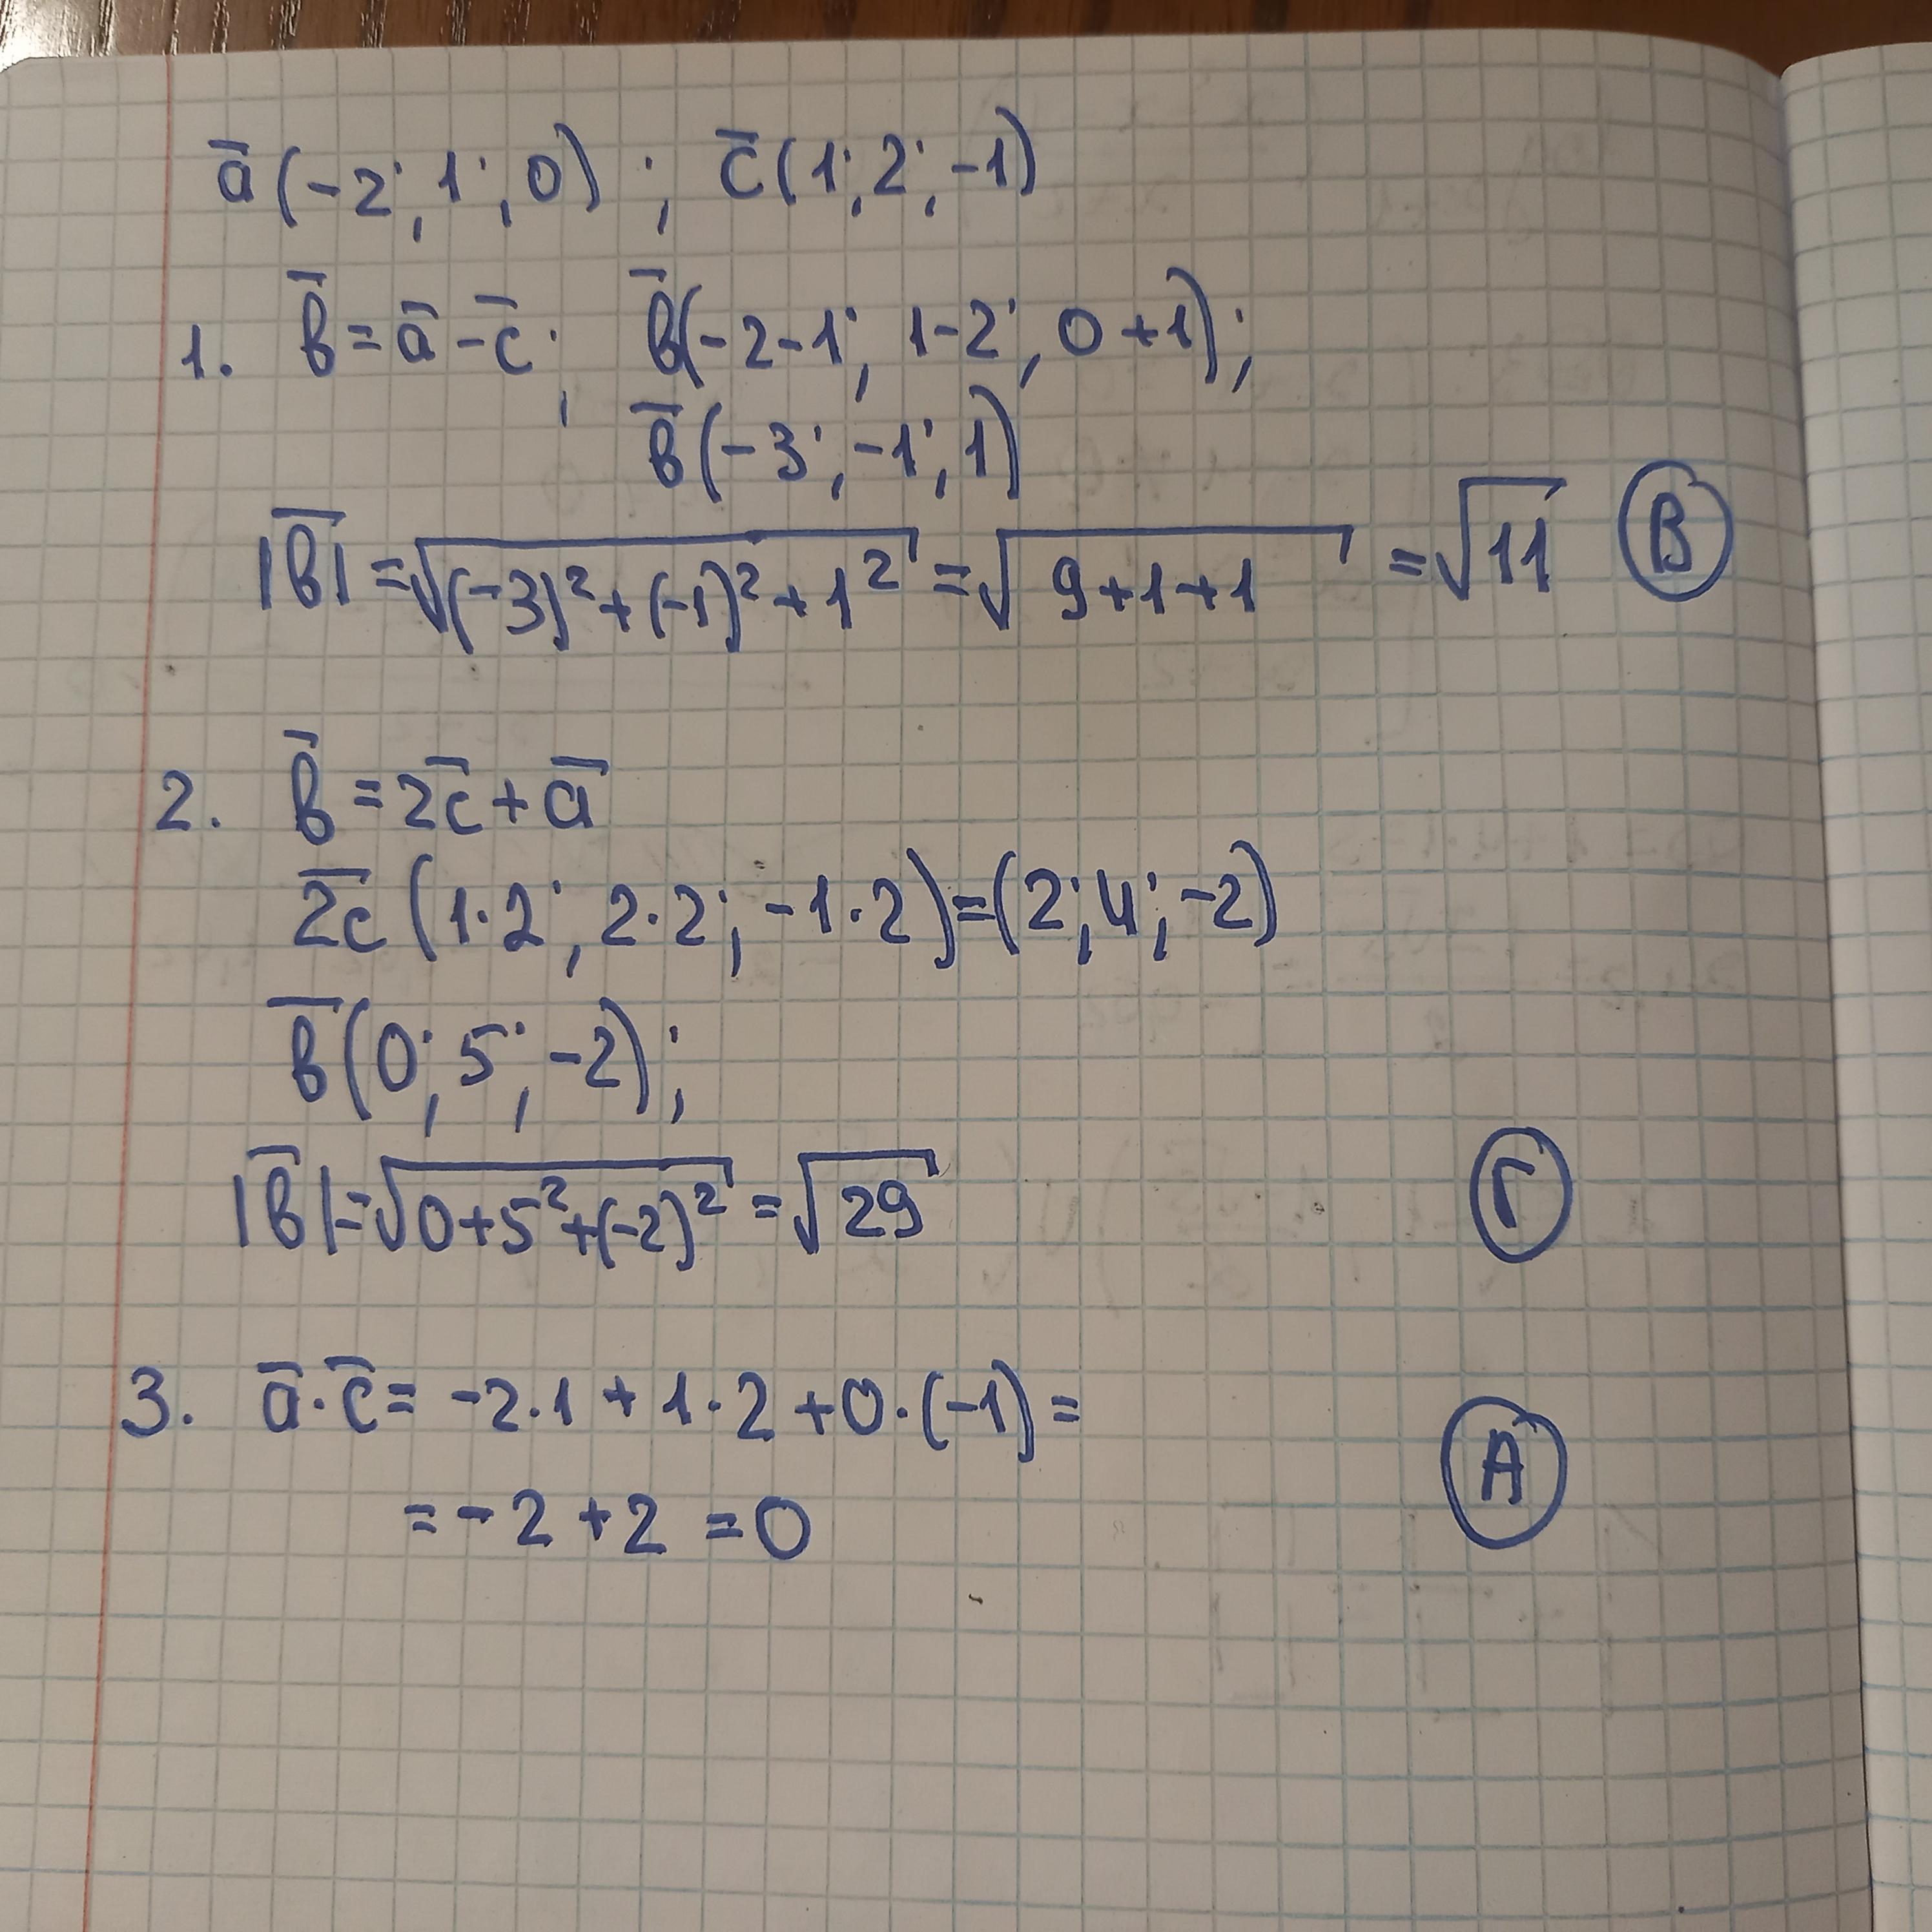 a̅ (-2; 1; 0) ; c̅ (1; 2; -1)
1. b̅ = a̅ - c̅ ; b̅(-2-1; 1-2; 0+1);
b̅ (-3; -1; 1)
|b̅| = √((-3)²+(-1)²+1²) = √(9+1+1) = √11 В
2. b̅ = 2c̅ + a̅
2c̅ (1·2; 2·2; -1·2)=(2; 4; -2)
b̅ (0; 5; -2);
|b̅| = √(0+5²+(-2)²) = √29 Г
3. a̅ · c̅ = -2·1 + 1·2 + 0·(-1) =
= -2 + 2 = 0 А